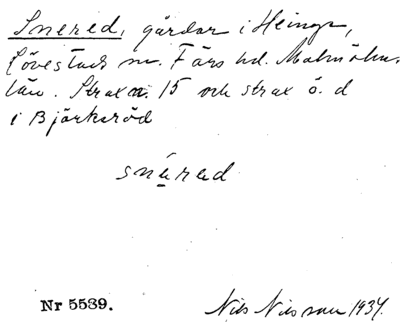 Snered, gårdar i Heinge,
Lövestads sn. Färs hd. Malmöhus
län. Strax n. 15 och strax ö. d
i Björksröd
snérad
Nr 5539.
Nils Nilsson 1934.